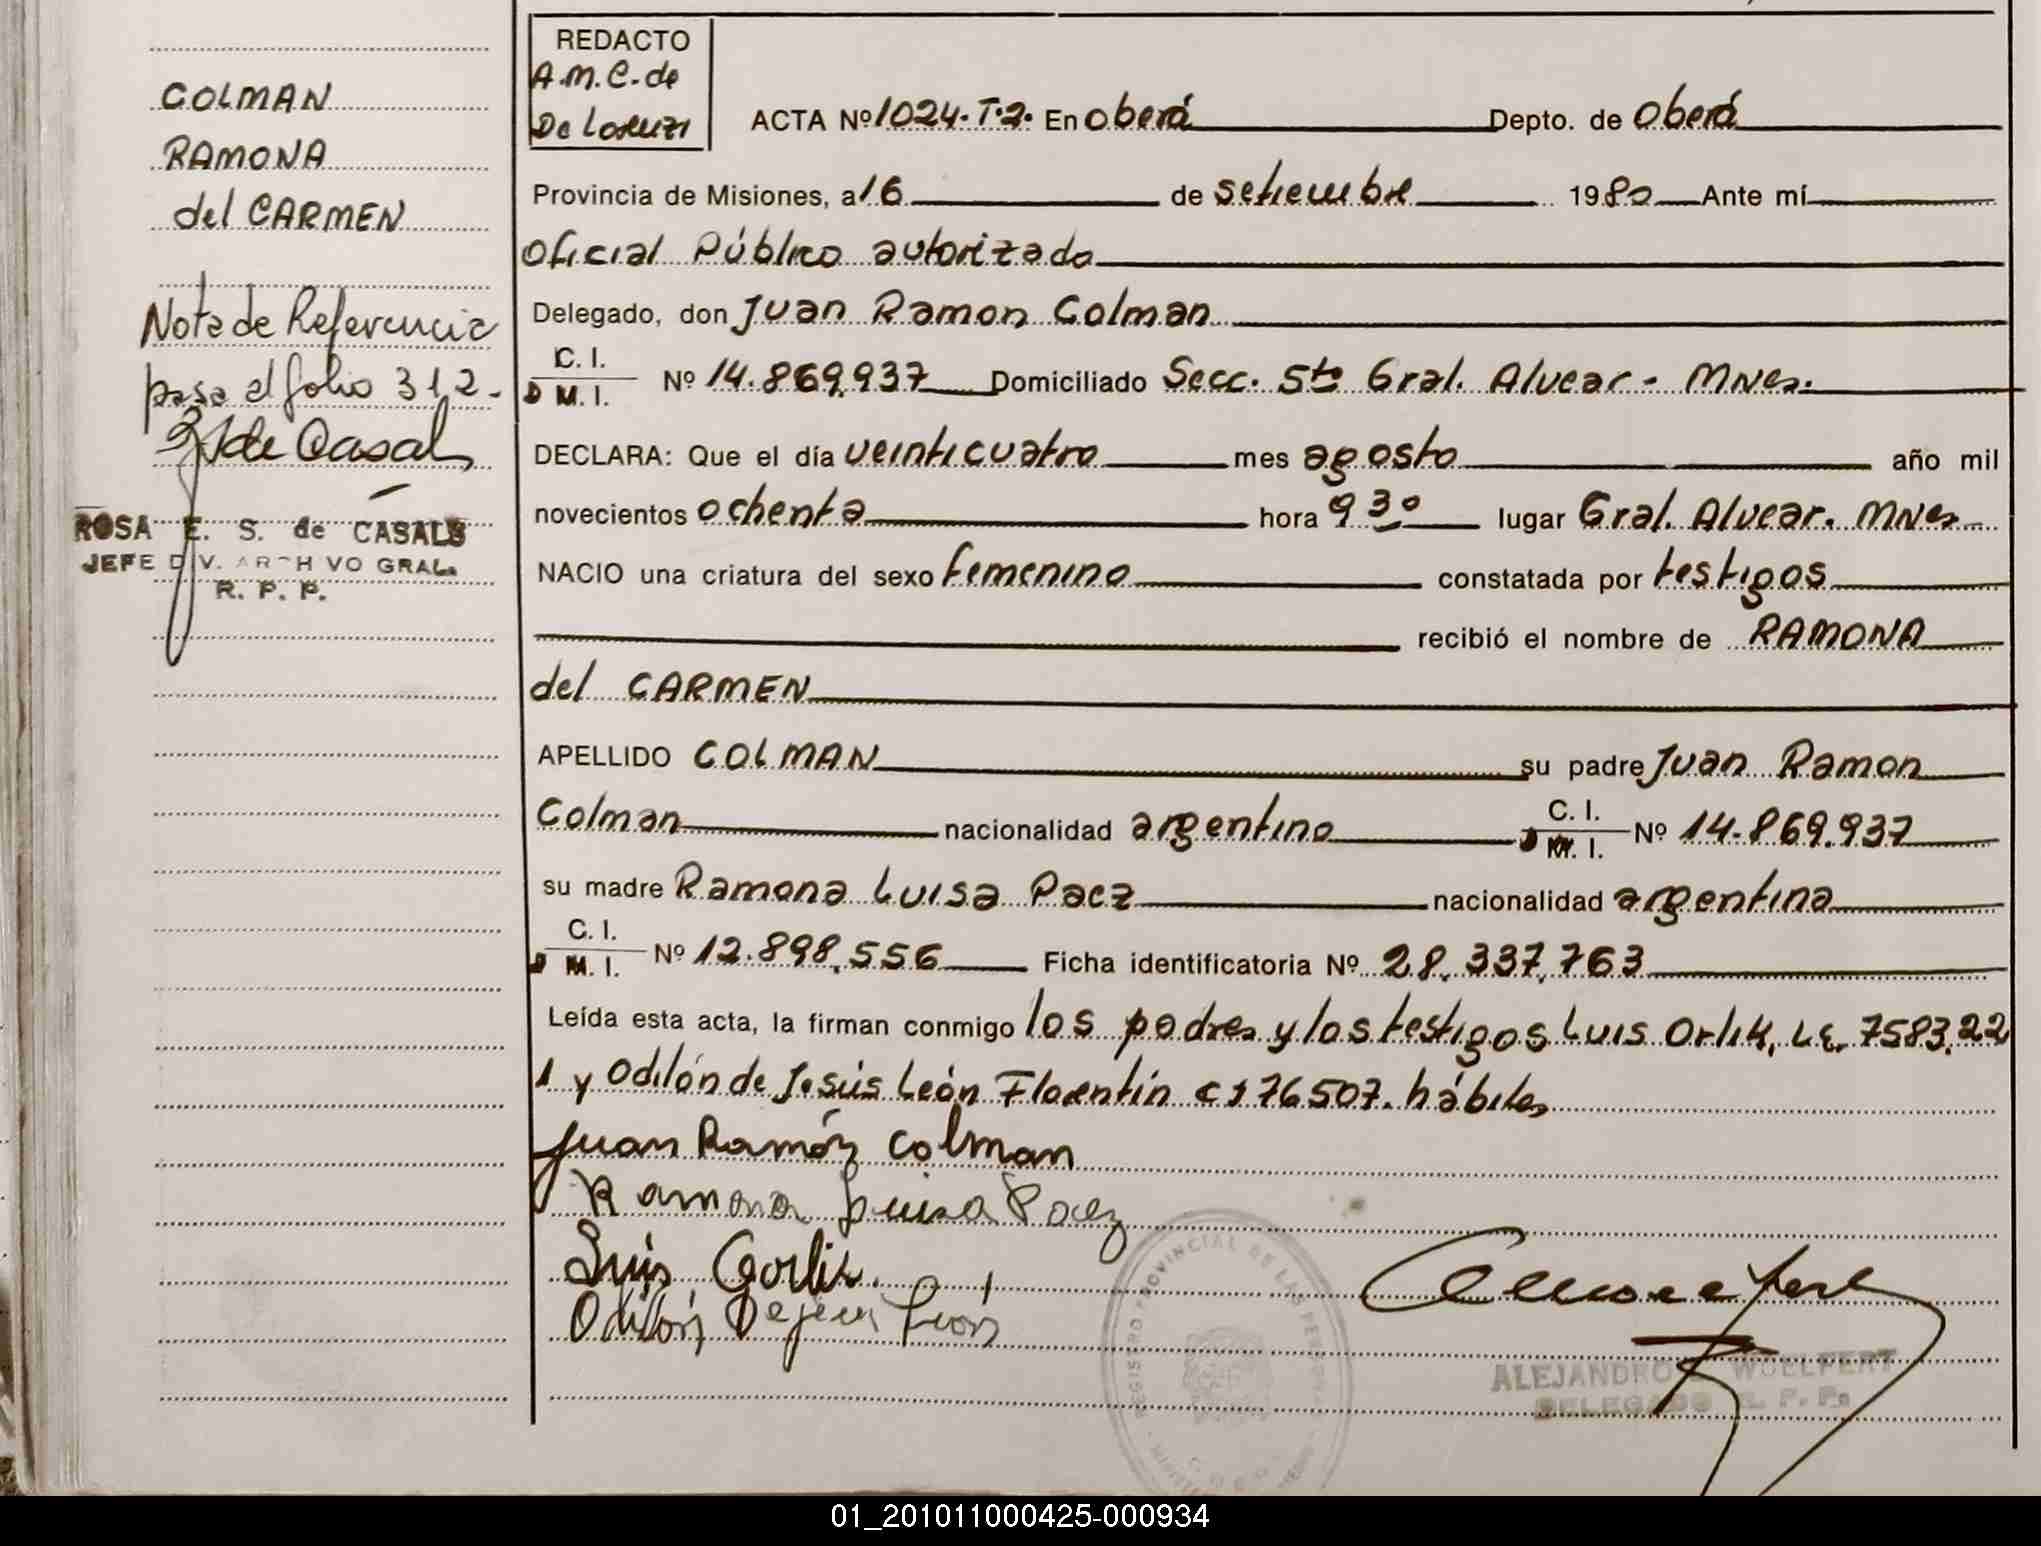 COLMAN
RAMONA
del CARMEN
Nota de Referencia
pasa al folio 312.-
de Casals
ROSA E. S. de CASALS
JEFE DIV. ARCHIVO GRAL.
R. P. P.
REDACTO
A.M.C. de
De Lorenzi
ACTA Nº 1024. T.2. En Oberá Depto. de Oberá
Provincia de Misiones, a 16 de setiembre 1980 Ante mí
Oficial Público autorizado
Delegado, don Juan Ramon Colman
C. I.
D M. I. Nº 14.869.937 Domiciliado Secc. 5ta Gral. Alvear - Mnes.
DECLARA: Que el día veinticuatro mes agosto año mil
novecientos ochenta hora 9 30 lugar Gral. Alvear. Mnes
NACIO una criatura del sexo femenino constatada por testigos
recibió el nombre de RAMONA
del CARMEN
APELLIDO COLMAN su padre Juan Ramon
Colman nacionalidad argentino C. I. D M. I. Nº 14.869.937
su madre Ramona Luisa Paez nacionalidad argentina
C. I.
D M. I. Nº 12.898.556 Ficha identificatoria Nº 28.337.763
Leída esta acta, la firman conmigo los padres y los testigos Luis Orlik, LE. 7583.22
1 y Odilón de Jesús León Florentín CI 76507. hábiles
Juan Ramón Colman
Ramona Luisa Paez
Luis Gorlik.
Odilón De jesus León
REGISTRO PROVINCIAL DE LAS PERSONAS
ALEJANDRO WOELFERT
DELEGADO R. P. P.
01_201011000425-000934